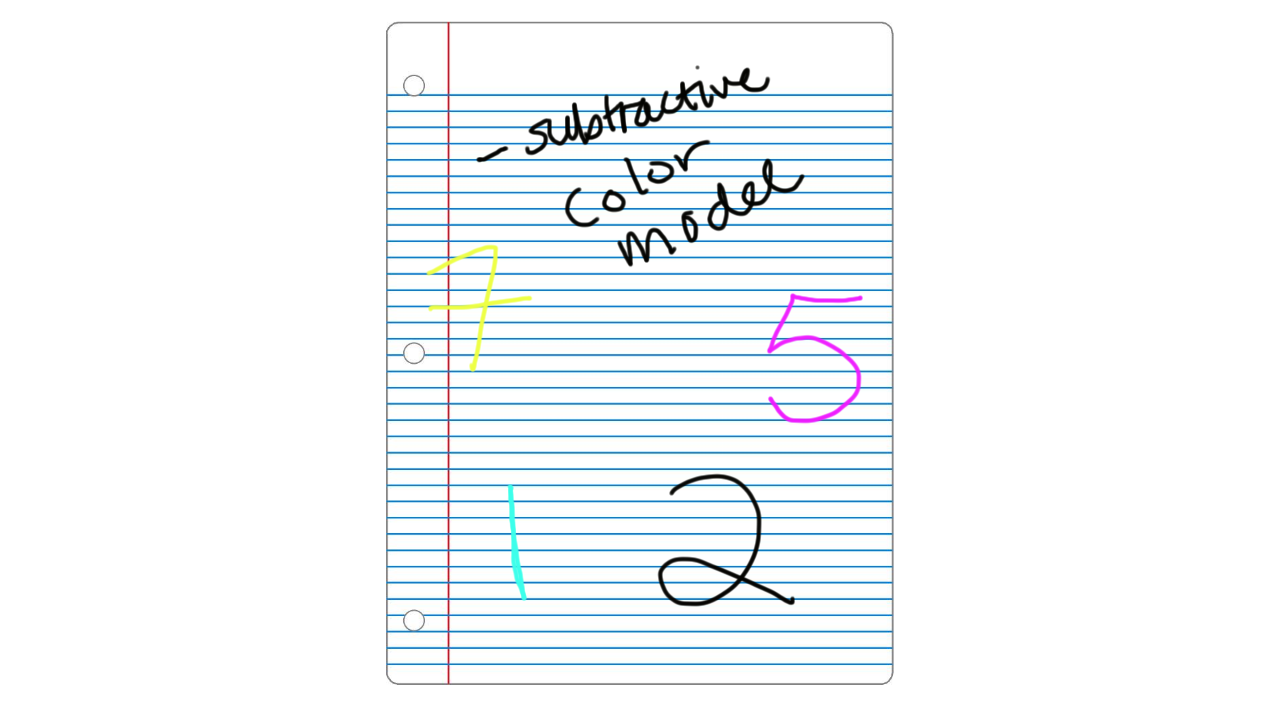 - subtractive
color
model
7
5
1 2